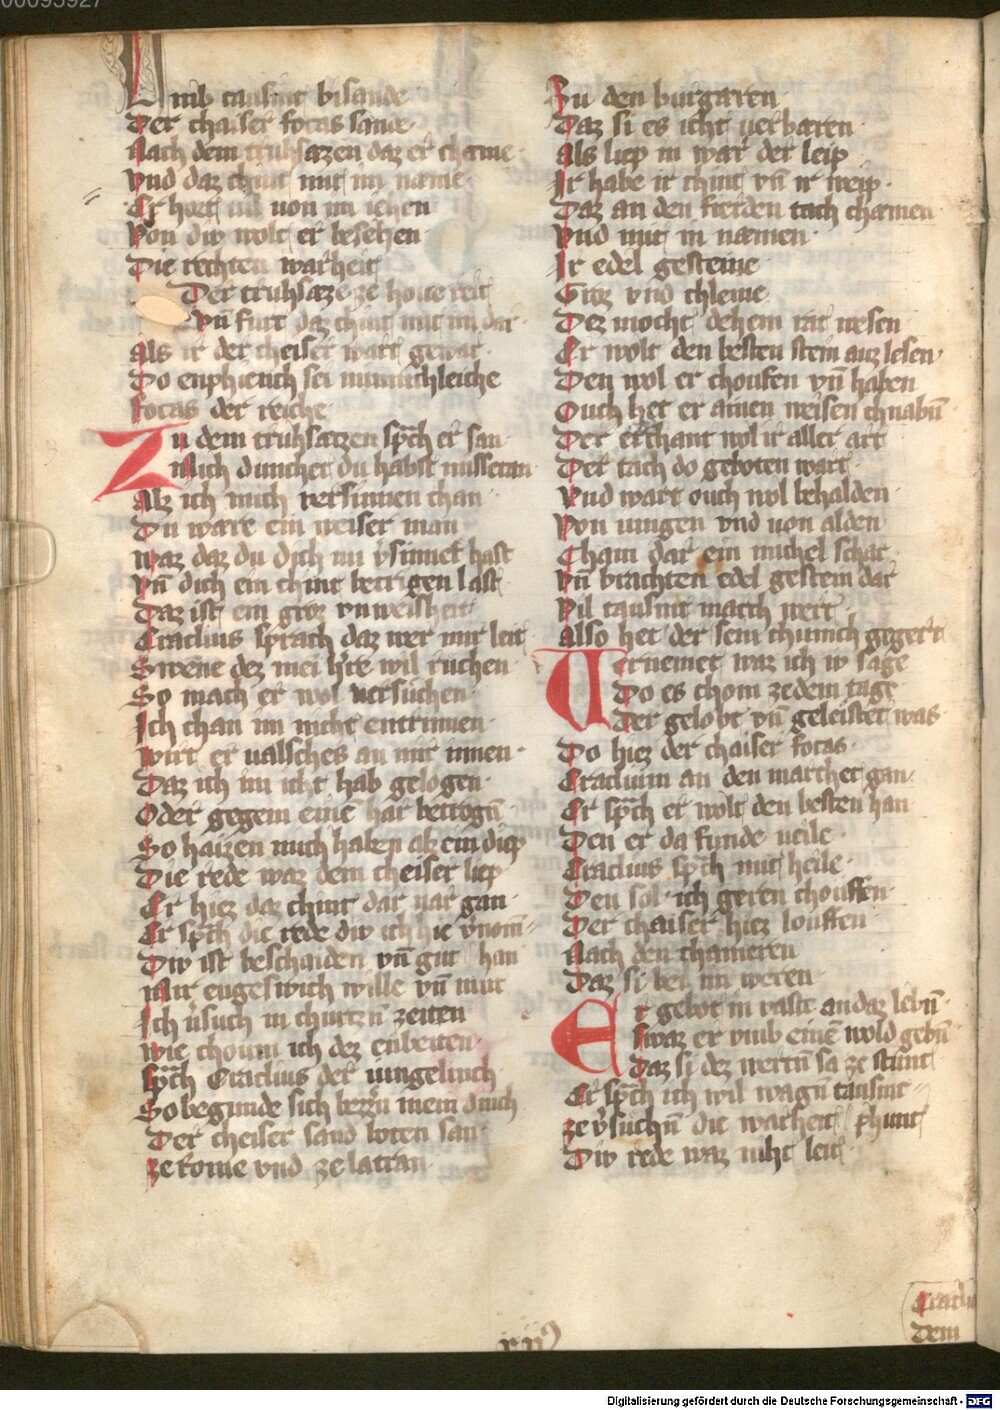 00095927
Umb tausint bisande
Der chaiser focas sande
Nach dem truhsazen daz er chæme
Vnd daz chint mit im næme
Er hœt vil von im iehen
Von div wolt er besehen
Die rechten warheit
Der truhsaze ze houe reit
Vn̄ furt daz chint mit im dar
Als ir der cheiser wart gewar
Do enphiench sei minnichleiche
Focas der reiche
Zu dem truhsatzen sp̄ch er san
Mich dunchet du habst missetan
Alz ich mich versinnen chan
Du ware ein weiser man
Waz daz du dich nu v̓sinnet hast
Vn̄ dich ein chint betrigen last
Daz ist ein groz vnweisheit
Eraclius sprach daz wer mir leit
Swene dez mei h̓re wil ruchen
So mach er wol versuchen
Ich chan im nicht entrinnen
Wirt er valsches an mir innen
Daz ich im icht hab gelogen
Oder gegem einē har betrogn̄
So haizen mich haben alz ein diep
Die rede waz dem cheiser liep
Er hiez daz chint dar nar gan
Er sp̄ch die rede div ich hie v̓nom̄
Div ist beschaiden vn̄ gut han
Mit engeswich wille vn̄ mut
Ich v̓such in churtzn̄ zeiten
Wie choum ich dez enbeiten
Sp̄ch Eraclius der iungelinch
So begunde sich bezz̓n mein dinch
Der cheiser sand boten san
Ze Rome vnd ze lattran
Zu den burgæren
Daz si es icht verbæren
Als liep in wær der leip
Ir habe ir chint vn̄ ir weip
Daz an den fierden tach chæmen
Vnd mit in næmen
Ir edel gesteine
Groz vnd chleine
Dez mocht dehein rat wesen
Er wolt den besten stein auz lesen
Den wol er choufen vn̄ haben
Ouch het er ainen weisen chnabn̄
Der erchant wol ir aller art
Der tach do geboten wart
Vnd wart ouch wol behalden
Von iungen vnd von alden
Cham dar ein michel schar
Vn̄ brachten edel gestein dar
Vil tausint march wert
Also het der sein chunich gegert
Vernemet waz ich iv sage
Do es chom ze dem tage
Der gelobt vn̄ geleistet was
Do hiez der chaiser focas
Eraclium an den marchet gan
Er sp̄ch er wolt den besten han
Den er da funde veile
Eraclius sp̄ch mit heile
Den sol ich geren chouffen
Der chaiser hiez louffen
Nach den chameren
Daz si bei im weren
Er gebot in vast an daz lebn̄
Swaz er vmb einē wold gebn̄
Daz si dez wertn̄ sa ze stunt
Er sp̄ch ich wil wagn̄ tausint
ze v̓suchn̄ die warheit phunt
Div rede waz niht leit
Eracliu
Dem
Digitalisierung gefördert durch die Deutsche Forschungsgemeinschaft - DFG